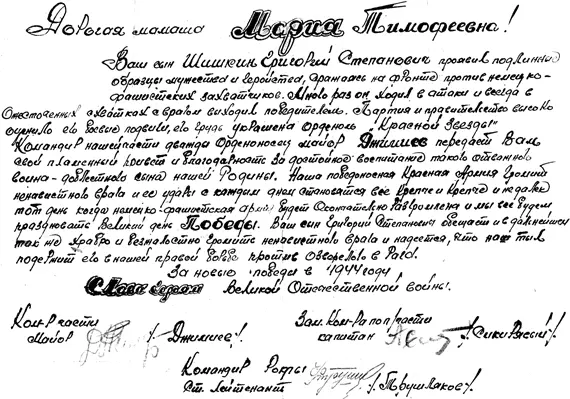 Дорогая мамаша Мария Тимофеевна!
Ваш сын Шишкин Григорий Степанович проявил подлинные
образцы мужества и геройства, сражаясь на фронте против немецко-
фашистских захватчиков. Много раз он ходил в атаки и всегда в
ожесточенных схватках с врагом выходил победителем. Партия и правительство высоко
оценило его боевые подвиги, его грудь украшена орденом "Красной Звезды"
Командир нашей части дважды Орденоносец майор Джилиев передает Вам
свой пламенный привет и благодарность за достойное воспитание такого отважного
воина-доблестного сына нашей Родины. Наша победоносная Красная Армия громит
ненавистного врага и ее удары с каждым днем становятся все крепче и крепче и недалек
тот день когда немецко-фашистская армия будет окончательно разгромлена и мы все будем
праздновать Великий день Победы. Ваш сын Григорий Степанович обещает и в дальнейшем
так же храбро и безжалостно громить ненавистного врага и надеется, что наш тыл
поддержит его в нашей правой борьбе против озверелого врага.
За новые победы в 1944 году!
Слава героям Великой Отечественной войны.
Ком-р части
майор /Джилиев/.
Зам. Ком-ра по п/части
капитан
Командир роты
Ст. Лейтенант